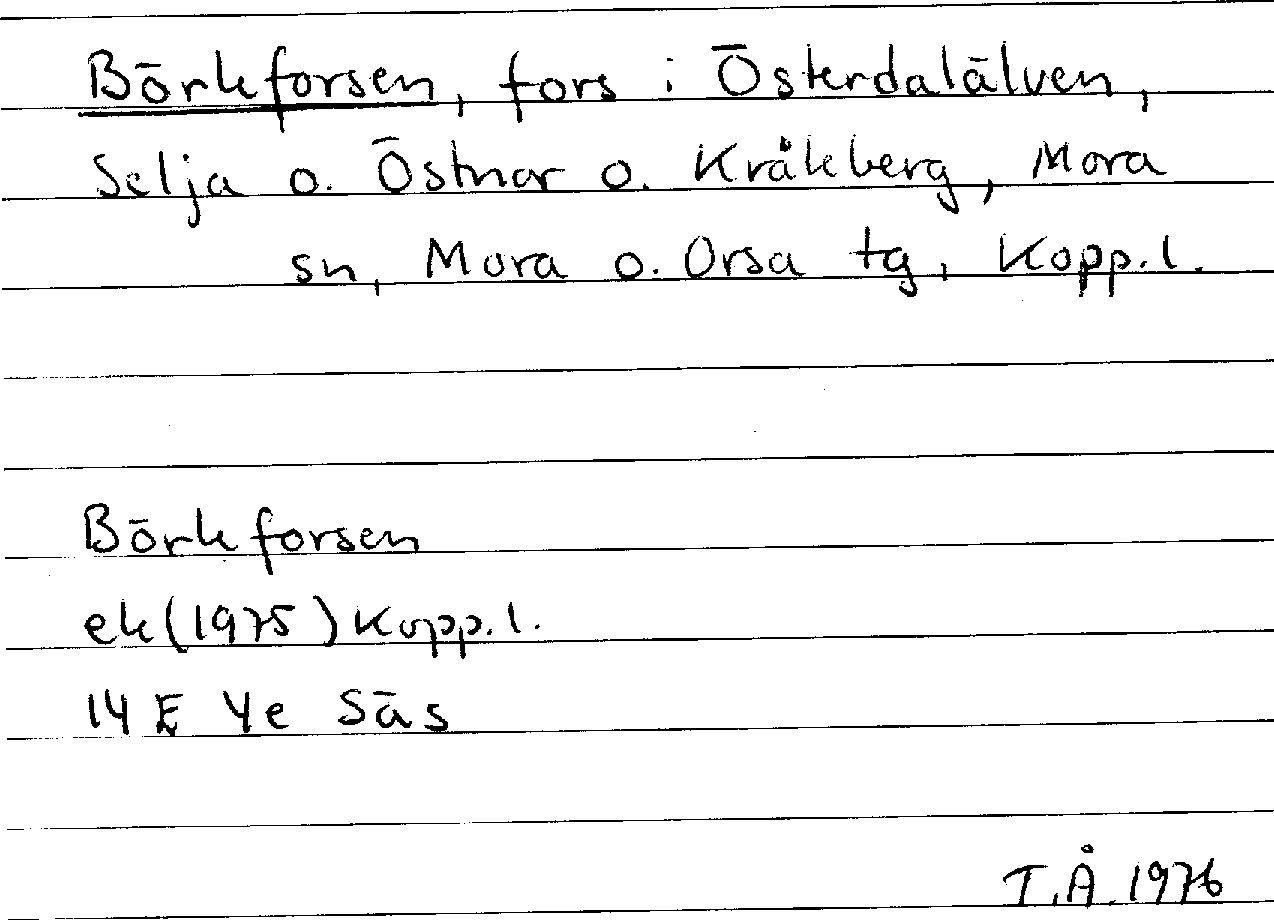 Börkforsen, fors i Österdalälven,
Selja o. Östnor o. Kråkberg, Mora
sn, Mora o. Orsa tg, Kopp.l.
Börkforsen
ek(1975)Kopp.l.
14 E 4e Säs
T.Å.1976